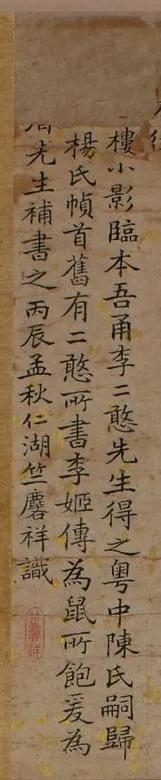 樓小影臨本吾甬李二憨先生得之粵中陳氏嗣歸
楊氏幀首舊有二憨所書李姬傳為鼠所飽爰為
先生補書之丙辰孟秋仁湖竺麐祥識